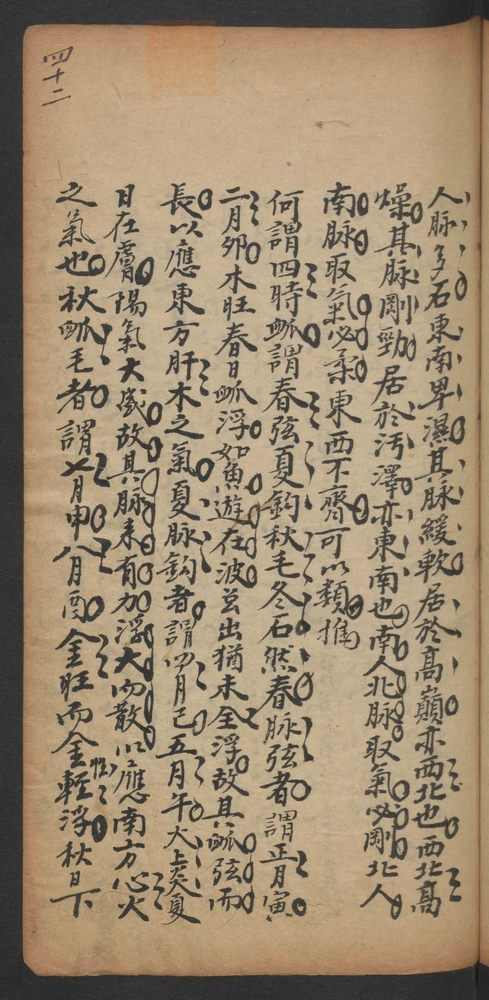 四十二
人脉多石東南卑濕其脉緩軟居於高巔亦西北也西北高
燥其脉剛勁居於汚澤亦東南也南人北脉取氣必剛北人
南脉取氣必柔東西不齊可以類推
何謂四時脈謂春弦夏鈎秋毛冬石然春脉弦者謂正月寅
二月卯木旺春日脈浮如魚遊在波並出猶未全浮故其脈弦而
長以應東方肝木之氣夏脉鈎者謂四月巳五月午火上炎夏
日在膚陽氣大盛故其脉来有力浮大而散以應南方心火
之氣也秋脈毛者謂七月申八月酉金旺而金性輕浮秋日下